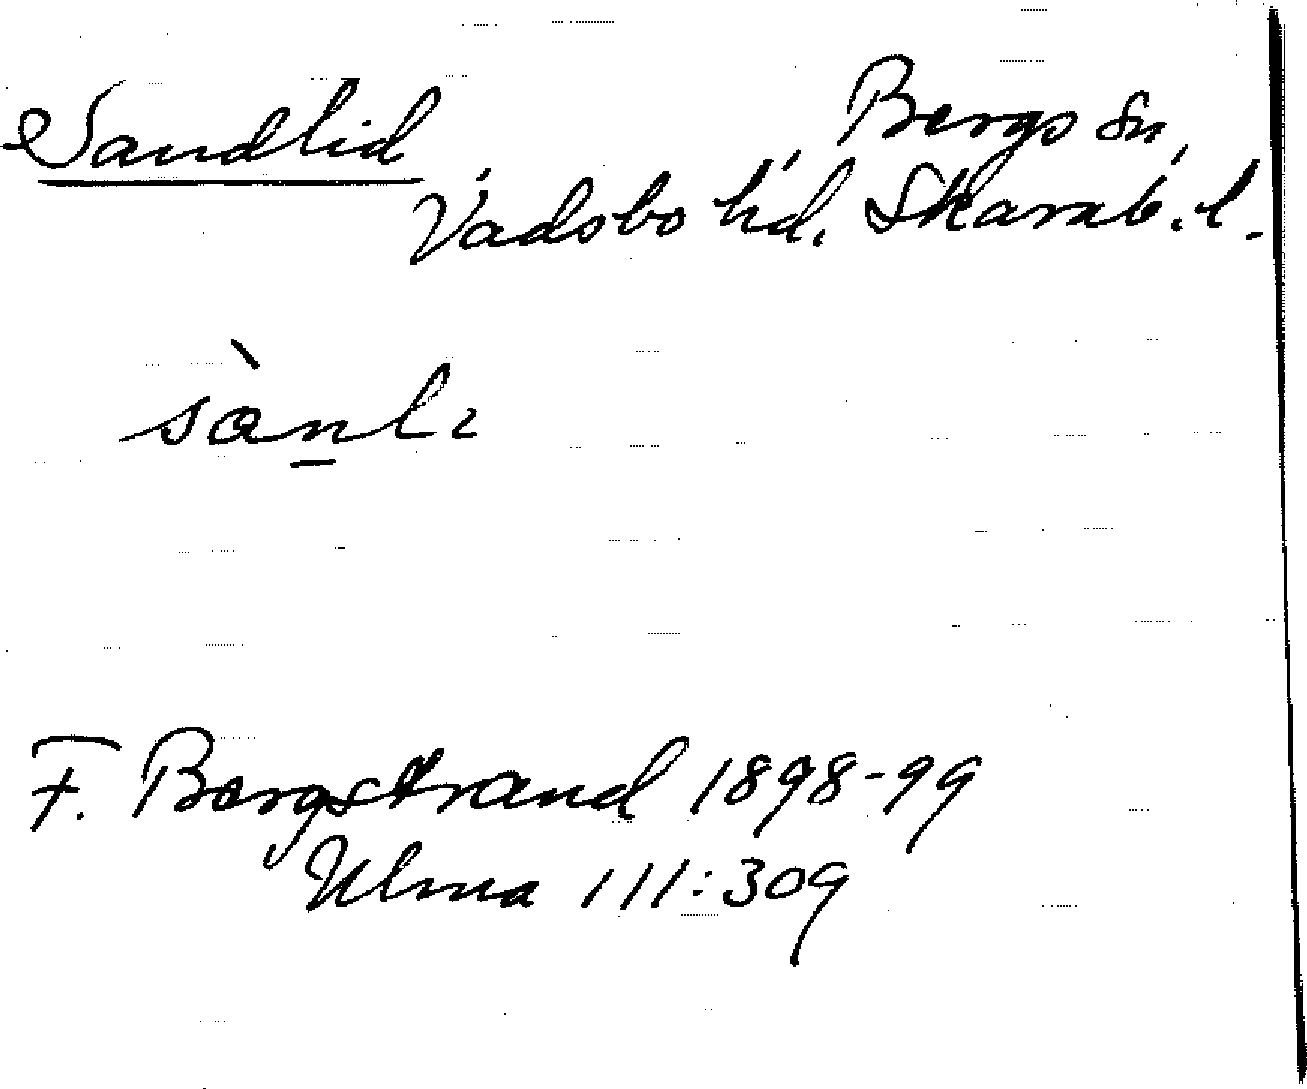 Sandlid
Bergs sn,
Vadsbo hd. Skarab. l.
sànlı
F. Bergstrand 1898-99
Ulma 111:309